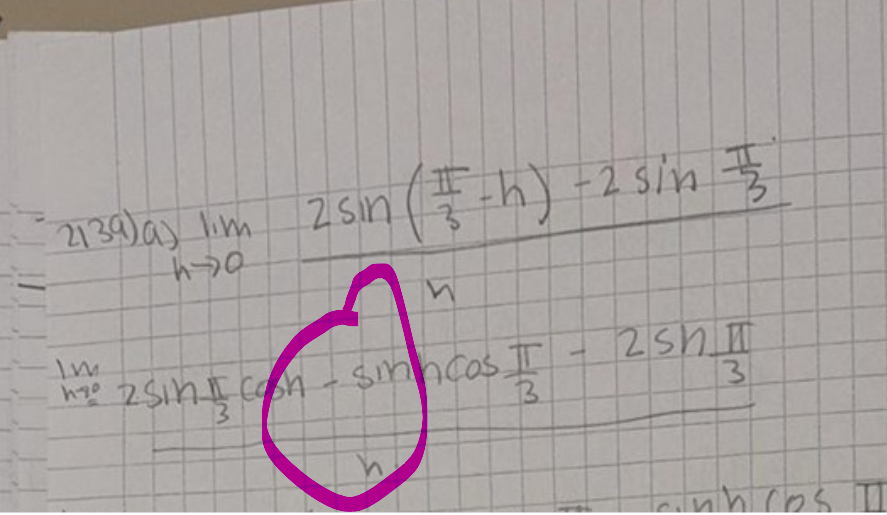 2139)a) lim 2sin(π/3 - h) - 2 sin π/3
h→0 h
lim 2sin π/3 cosh - sinhcos π/3 - 2sn π/3
h→0 h
sinh cos π